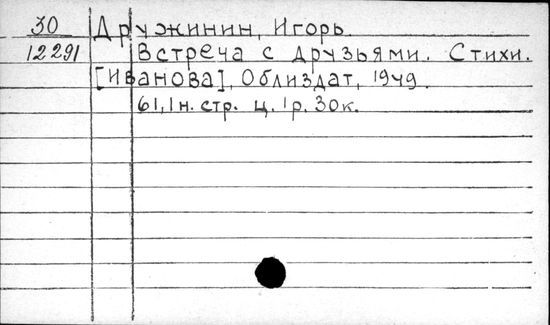 30 Дружинин, Игорь.
12291 Встреча с друзьями. Стихи.
[Иванова], Облиздат, 1949.
61,1н. стр. ц. 1р. 30к.